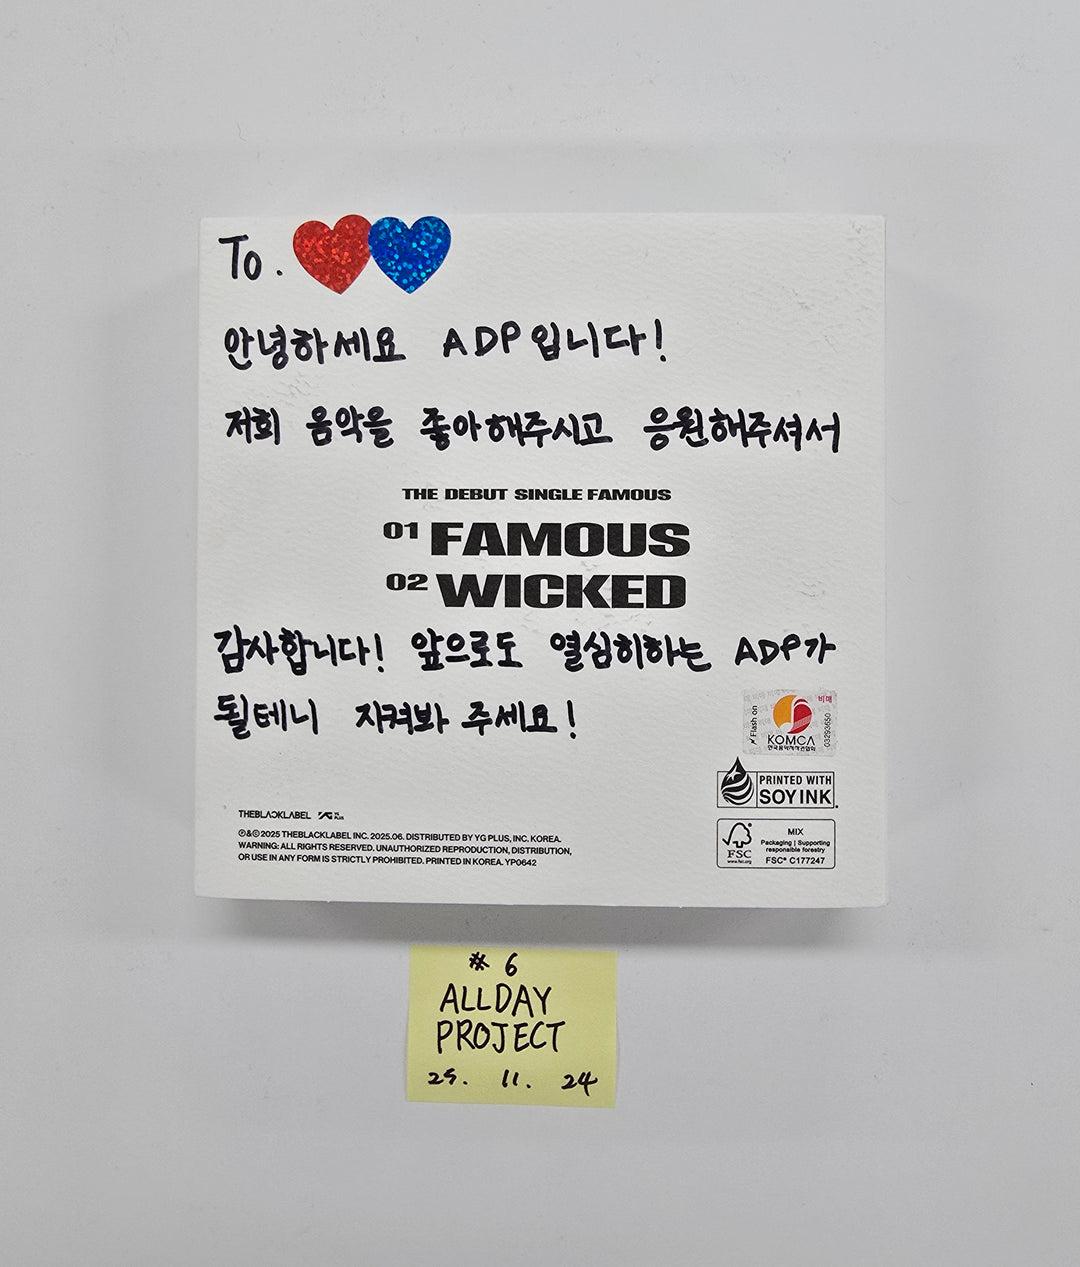 To.
안녕하세요 ADP입니다!
저희 음악을 좋아해주시고 응원해주셔서
THE DEBUT SINGLE FAMOUS
01 FAMOUS
02 WICKED
감사합니다! 앞으로도 열심히하는 ADP가
될테니 지켜봐 주세요!
비매
Flash on
KOMCA
한국음악저작권협회
03293650
PRINTED WITH
SOY INK
THEBLACKLABEL YG PLUS
℗&© 2025 THEBLACKLABEL INC. 2025.06. DISTRIBUTED BY YG PLUS, INC. KOREA.
WARNING: ALL RIGHTS RESERVED. UNAUTHORIZED REPRODUCTION, DISTRIBUTION,
OR USE IN ANY FORM IS STRICTLY PROHIBITED. PRINTED IN KOREA. YP0642
FSC
www.fsc.org
MIX
Packaging | Supporting
responsible forestry
FSC® C177247
#6
ALLDAY
PROJECT
25. 11. 24